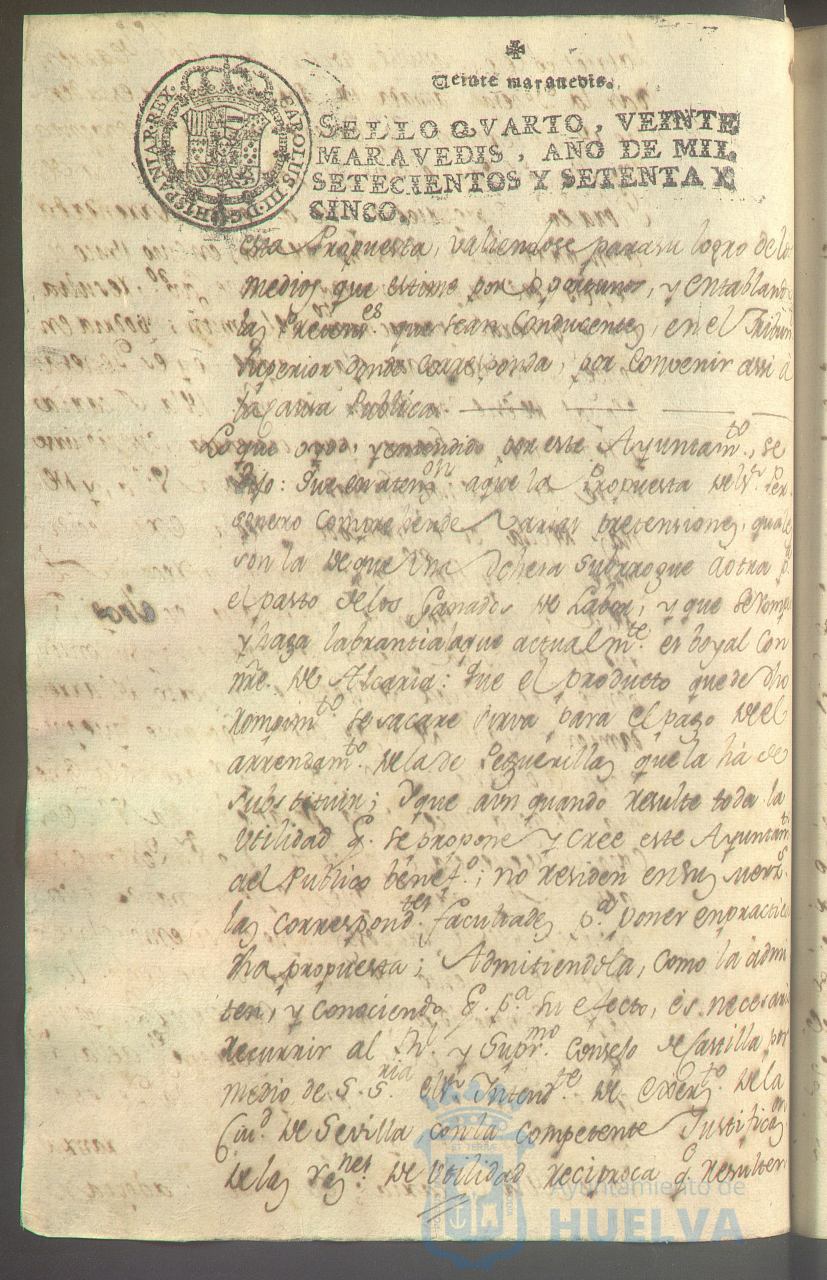 Veinte maravedis.
CAROLUS III D G HISPANIAR REX
SELLO QVARTO, VEINTE
MARAVEDIS, AÑO DE MIL
SETECIENTOS Y SETENTA Y
CINCO.
esta Propuesta, valiendose para su logro de los
medios que estime por oportunos, y entablando
las Pretenes. que sean Conducentes, en el Tribun
Superior donde corresponda, por convenir assi à
la Causa Publica.
Lo que oydo, y entendido por este Ayuntamto., se
Dijo: Que en atenon. aque la Propuesta del Sr. Per-
sonero Comprehende varias pretensiones, quale
son la de que una Dehesa subrrogue a otra pa.
el pasto de los Ganados de Labor, y que se rompa
y haga labrantia laque actualmte. es boyal con
nre. de Alcaria: Que el producto que de dho
rompimto. se sacare sirva para el pago del
arrendamto. dela de Peguerillas que la há de
substituir; Y que aun quando resulte toda la
Utilidad q. se propone y cree este Ayuntamto
del Publico benefo.; no residen en sus merzs.
las correspondtes. facultades pa. poner en practica
dha propuesta; Admitiendola, como la admi
ten, y conociendo q. pa. su efecto, es necesario
recurrir al Rl. y Suprmo. Consejo de Castilla por
medio de S. Sria. el Sr. Intendte. de Exerto. de la
Ciud. de Sevilla, con la competente Justificaon
de las raznes. de Utilidad reciproca q. resulten
Ayuntamiento de
HUELVA